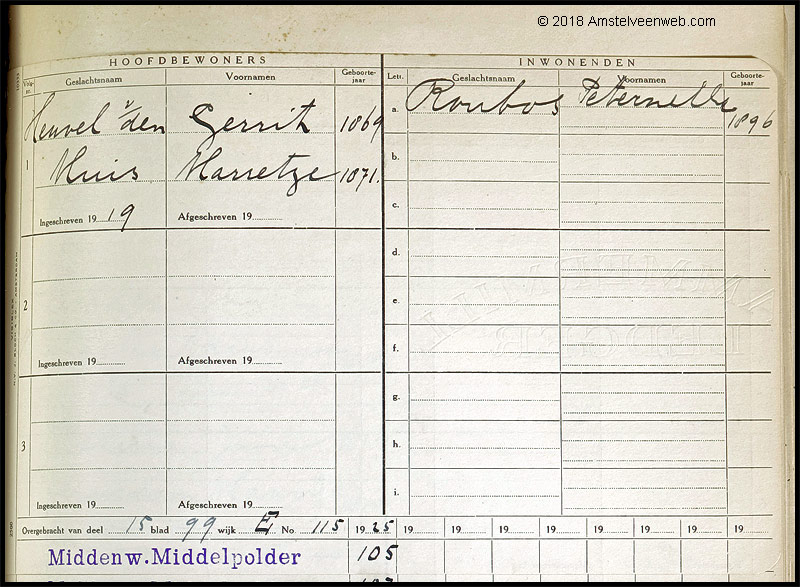 © 2018 Amstelveenweb.com
HOOFDBEWONERS
INWONENDEN
Geslachtsnaam Voornamen Geboorte-jaar
Lett. Geslachtsnaam Voornamen Geboorte-jaar
Heuvel v/den Gerrit 1869
a. Roubos Peternella 1896
1 Muis Marretze 1871.
b.
c.
Ingeschreven 19 19 Afgeschreven 19
d.
2
e.
f.
Ingeschreven 19 Afgeschreven 19
g.
3
h.
i.
Ingeschreven 19 Afgeschreven 19
Overgebracht van deel 15 blad 99 wijk E No 115 19 25 19 19 19 19 19 19 19 19
Middenw. Middelpolder 105